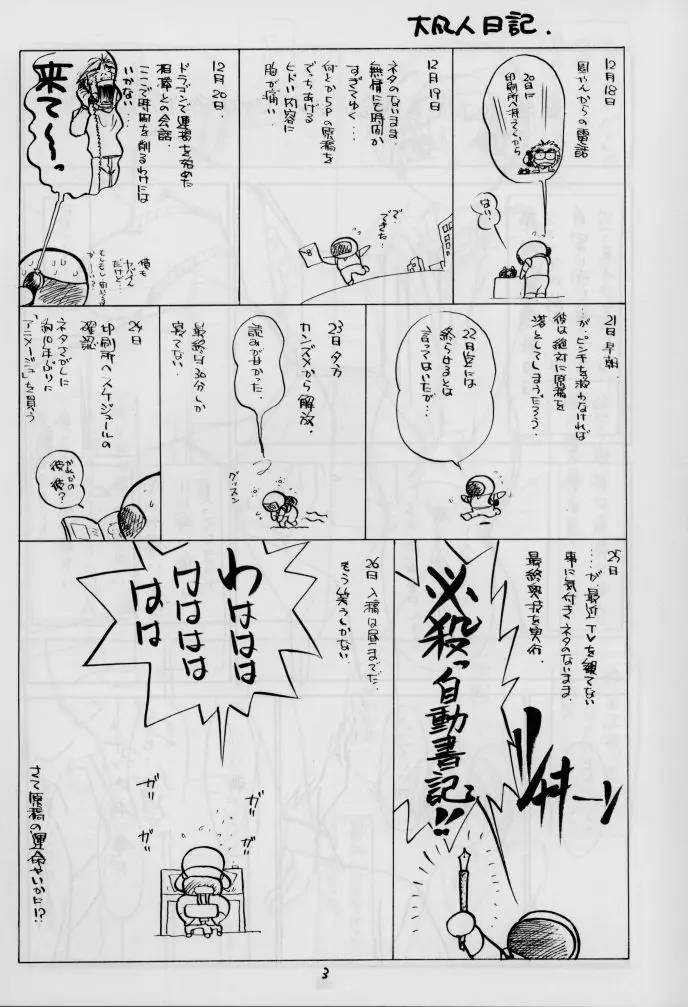 大凡人日記.
12月18日
からの電話
20日に
印刷所へ持ってくから
はい…
12月19日
ネタのないまま
無情にも時間が
すぎてゆく…
何とか5Pの原稿を
でっちあげる
ヒドい内容に
胸が痛い
で、
できた…
12月20日
ドラゴンで連載を始めた
相棒との会話.
ここで時間を削るわけには
いかない…
来て〜〜っ
俺も
ヤバイん
だけど…
21日 早朝
…が、ピンチを救わなければ
彼は絶対に原稿を
落としてしまうだろう.
22日中には
終らせるとは
言ってはいたが…
23日 夕方
カンヅメから解放.
最終は30分しか
寝てない.
読みが甘かった.
グッスン
24日
印刷所へスケジュールの
確認
ネタさがしに
約10年ぶりに
「アニメージュ」を買う
かれかの
彼彼?
25日
……が、最近TVを観てない
事に気付きネタのないまま
最終奥技を実行.
必殺っ
自動書記!!
ジャキーン
26日 入稿は昼までだ.
もう笑うしかない
わははは
はははは
はは
ガガガガ
さて原稿の運命やいかに!?
3